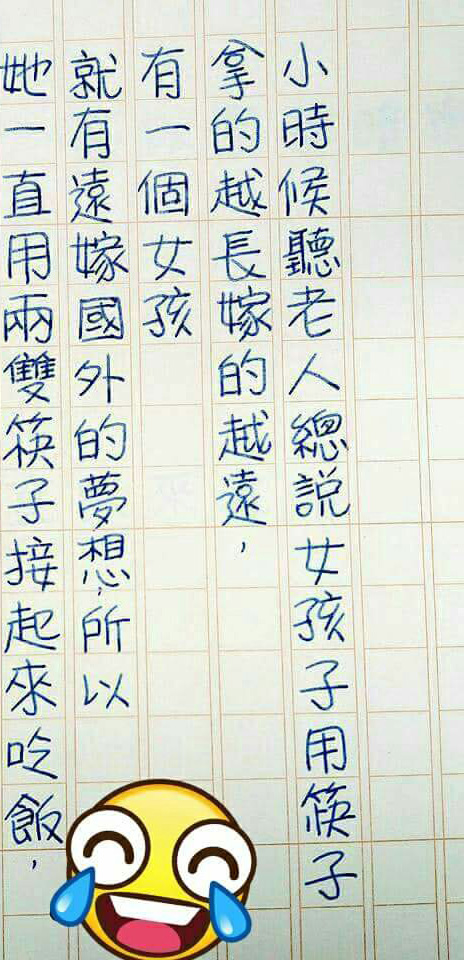 小時候聽老人總說女孩子用筷子
拿的越長嫁的越遠，
有一個女孩
就有遠嫁國外的夢想，所以
她一直用兩雙筷子接起來吃飯，